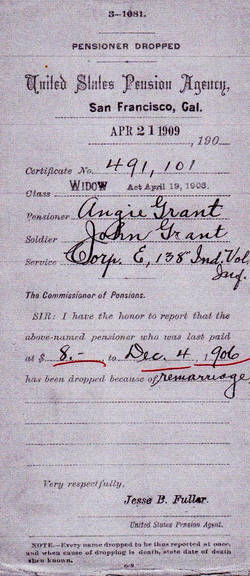 3-1081.
PENSIONER DROPPED
United States Pension Agency,
San Francisco, Cal.
APR 21 1909
, 190
Certificate No. 491,101
Class WIDOW Act April 19, 1908.
Pensioner Angie Grant
Soldier John Grant
Service Corp. E, 138" Ind. Vol,
Inf.
The Commissioner of Pensions.
SIR: I have the honor to report that the
above-named pensioner who was last paid
at $ 8.- to Dec. 4, 1906
has been dropped because of remarriage.
Very respectfully,
Jesse B. Fuller
United States Pension Agent.
NOTE.—Every name dropped to be thus reported at once,
and when cause of dropping is death, state date of death
when known.